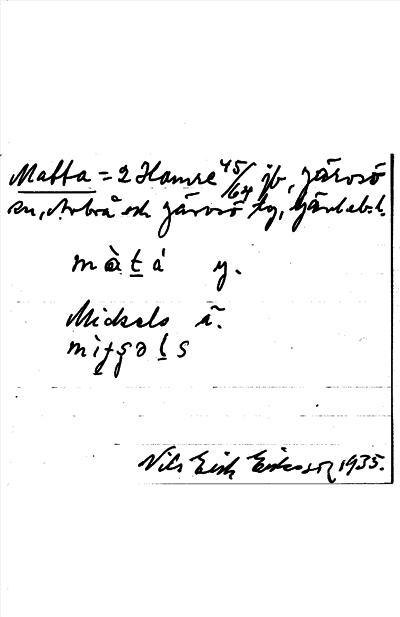 Matta = 2 Hamre 45/64 jb, Järvsö
sn, Arbrå och Järvsö tg, Gävleb. l.
màt̲á y.
Mickels ä.
Nils Erik Eriksson 1935.